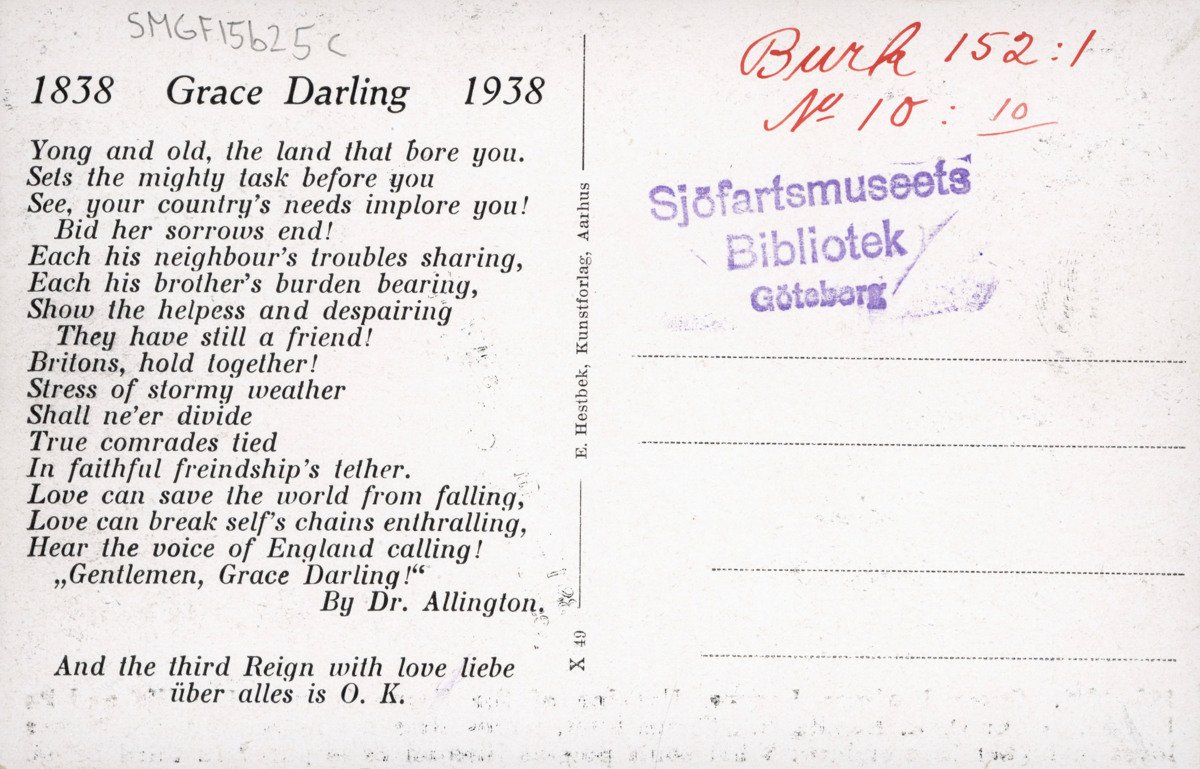 SMGF15b25c
1838 Grace Darling 1938
Yong and old, the land that bore you.
Sets the mighty task before you
See, your country's needs implore you!
Bid her sorrows end!
Each his neighbour's troubles sharing,
Each his brother's burden bearing,
Show the helpess and despairing
They have still a friend!
Britons, hold together!
Stress of stormy weather
Shall ne'er divide
True comrades tied
In faithful freindship's tether.
Love can save the world from falling,
Love can break self's chains enthralling,
Hear the voice of England calling!
„Gentlemen, Grace Darling!“
By Dr. Allington.
And the third Reign with love liebe
über alles is O. K.
E. Hestbek, Kunstforlag, Aarhus
X 49
Burk 152:1
No 10: 10
Sjöfartsmuseets
Bibliotek
Göteborg